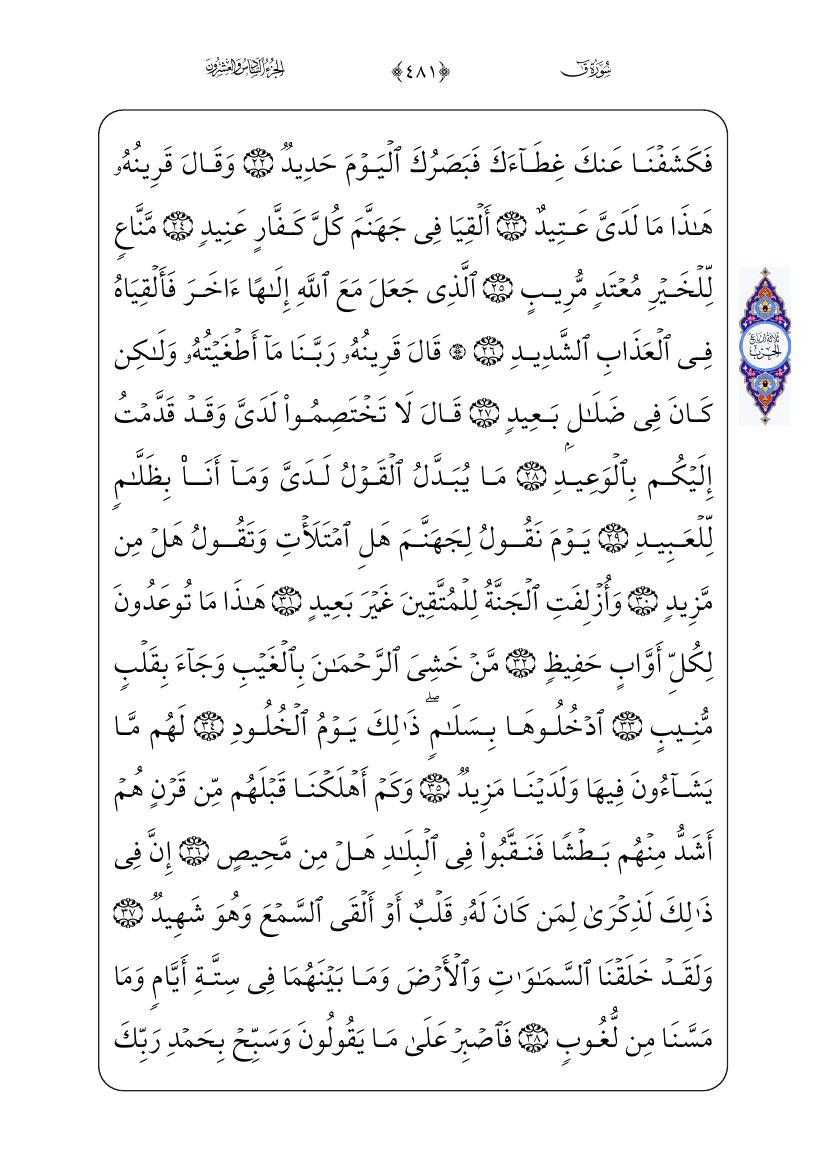 سُورَةُ قٓ ﴿٤٨١﴾ الجُزْءُ السَّادِسُ وَالعِشْرُونَ
فَكَشَفْنَا عَنكَ غِطَآءَكَ فَبَصَرُكَ ٱلْيَوْمَ حَدِيدٌ ٢٢ وَقَالَ قَرِينُهُۥ
هَٰذَا مَا لَدَىَّ عَتِيدٌ ٢٣ أَلْقِيَا فِى جَهَنَّمَ كُلَّ كَفَّارٍ عَنِيدٍ ٢٤ مَّنَّاعٍ
لِّلْخَيْرِ مُعْتَدٍ مُّرِيبٍ ٢٥ ٱلَّذِى جَعَلَ مَعَ ٱللَّهِ إِلَٰهًا ءَاخَرَ فَأَلْقِيَاهُ
فِى ٱلْعَذَابِ ٱلشَّدِيدِ ٢٦ ۞ قَالَ قَرِينُهُۥ رَبَّنَا مَآ أَطْغَيْتُهُۥ وَلَٰكِن
ثلاثة أرباع
الحزب
كَانَ فِى ضَلَٰلٍۭ بَعِيدٍ ٢٧ قَالَ لَا تَخْتَصِمُوا۟ لَدَىَّ وَقَدْ قَدَّمْتُ
إِلَيْكُم بِٱلْوَعِيدِ ٢٨ مَا يُبَدَّلُ ٱلْقَوْلُ لَدَىَّ وَمَآ أَنَا۠ بِظَلَّٰمٍ
لِّلْعَبِيدِ ٢٩ يَوْمَ نَقُولُ لِجَهَنَّمَ هَلِ ٱمْتَلَأْتِ وَتَقُولُ هَلْ مِن
مَّزِيدٍ ٣٠ وَأُزْلِفَتِ ٱلْجَنَّةُ لِلْمُتَّقِينَ غَيْرَ بَعِيدٍ ٣١ هَٰذَا مَا تُوعَدُونَ
لِكُلِّ أَوَّابٍ حَفِيظٍ ٣٢ مَّنْ خَشِىَ ٱلرَّحْمَٰنَ بِٱلْغَيْبِ وَجَآءَ بِقَلْبٍ
مُّنِيبٍ ٣٣ ٱدْخُلُوهَا بِسَلَٰمٍۖ ذَٰلِكَ يَوْمُ ٱلْخُلُودِ ٣٤ لَهُم مَّا
يَشَآءُونَ فِيهَا وَلَدَيْنَا مَزِيدٌ ٣٥ وَكَمْ أَهْلَكْنَا قَبْلَهُم مِّن قَرْنٍ هُمْ
أَشَدُّ مِنْهُم بَطْشًا فَنَقَّبُوا۟ فِى ٱلْبِلَٰدِ هَلْ مِن مَّحِيصٍ ٣٦ إِنَّ فِى
ذَٰلِكَ لَذِكْرَىٰ لِمَن كَانَ لَهُۥ قَلْبٌ أَوْ أَلْقَى ٱلسَّمْعَ وَهُوَ شَهِيدٌ ٣٧
وَلَقَدْ خَلَقْنَا ٱلسَّمَٰوَٰتِ وَٱلْأَرْضَ وَمَا بَيْنَهُمَا فِى سِتَّةِ أَيَّامٍ وَمَا
مَسَّنَا مِن لُّغُوبٍ ٣٨ فَٱصْبِرْ عَلَىٰ مَا يَقُولُونَ وَسَبِّحْ بِحَمْدِ رَبِّكَ